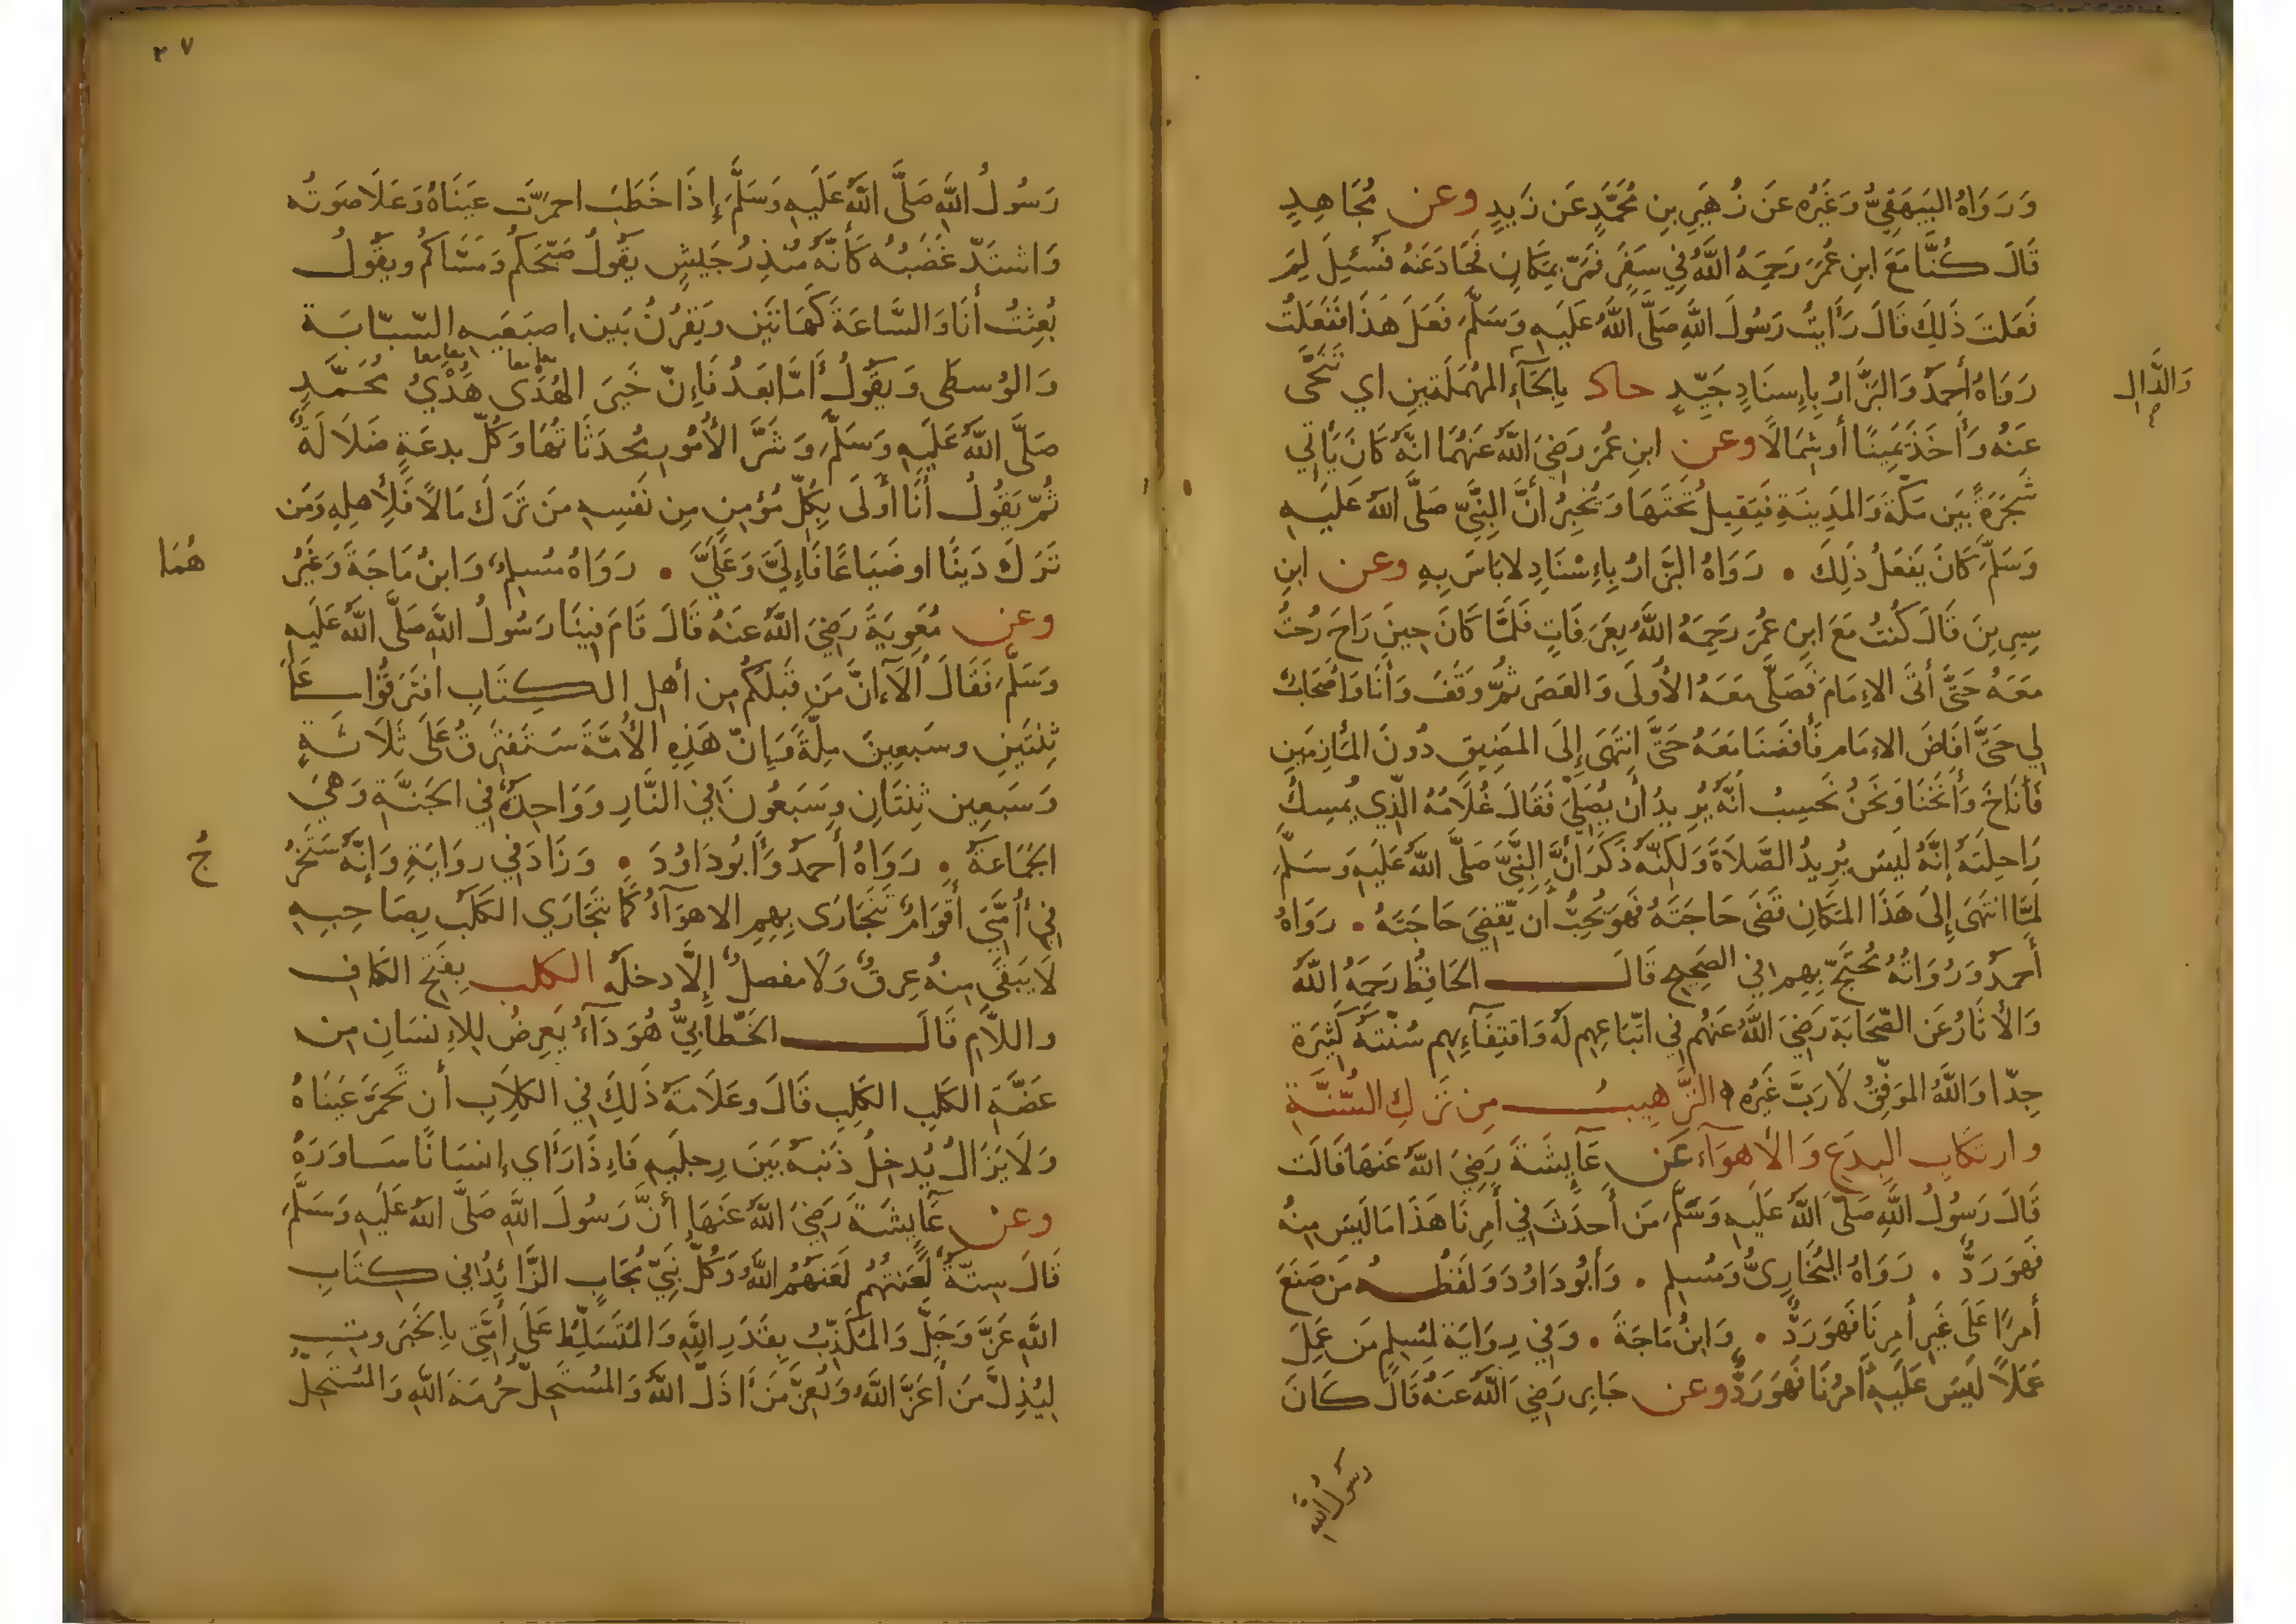 وَرَوَاهُ البَيهَقِيُّ وَغَيْرُه عَن زُهَيرِ بنِ مُحَمَّدٍ عَن زَيدٍ وعن مُجَاهِدٍ
قَالَ كُنَّا مَعَ ابنِ عُمَرَ رَحِمَهُ اللَّهُ فِي سَفَرٍ فَمَرَّ بِمَكَانٍ فَحَادَ عَنْهُ فَسُئِلَ لِمَ
فَعَلتَ ذَلِكَ قَالَ رَأَيتُ رَسُولَ اللَّهِ صَلَّى اللَّهُ عَلَيهِ وَسَلَّمَ فَعَلَ هَذَا فَفَعَلتُ
رَوَاهُ أَحمَدُ وَالبَزَّارُ بِإِسنَادٍ جَيِّدٍ حاد بِالحَآءِ المُهمَلَتَينِ اي تَنَحَّى
وَالدَّالِ
عَنهُ وَأَخَذَ يَمِينًا أو شِمَالًا وعن ابنِ عُمَرَ رَضِيَ اللَّهُ عَنهُمَا انَّهُ كَانَ يَأتِي
شَجَرَةً بَينَ مَكَّةَ وَالمَدِينَةِ فَيَقِيلُ تَحتَهَا وَيُخبِرُ أَنَّ النَّبِيَّ صَلَّى اللَّهُ عَلَيهِ
وَسَلَّمَ كَانَ يَفعَلُ ذَلِكَ • رَوَاهُ البَزَّارُ بِإِسْنَادٍ لا بَاسَ بِهِ وعن ابنِ
سِيرِينَ قَالَ كُنتُ مَعَ ابنِ عُمَرَ رَحِمَهُ اللَّهُ بِعَرَفَاتٍ فَلَمَّا كَانَ حِينَ رَاحَ رُحتُ
مَعَهُ حَتَّى أَتَى الإِمَامَ فَصَلَّى مَعَهُ الأُولَى وَالعَصرَ ثُمَّ وَقَفَ وَأَنَا وَأَصْحَابٌ
لِي حَتَّى افَاضَ الإِمَام فَأَفَضنَا مَعَهُ حَتَّى انتَهَى إِلَى المَضِيقِ دُونَ المَأزِمَينِ
فَأَنَاخَ وَأَنَخنَا وَنَحنُ نَحسِبُ أَنَّهُ يُرِيدُ أَن يُصَلِّيَ فَقَالَ غُلَامُهُ الَّذِي يُمسِكُ
رَاحِلَتَهُ إِنَّهُ لَيسَ يُرِيدُ الصَّلَاةَ وَلَكِنَّهُ ذَكَرَ أَنَّ النَّبِيَّ صَلَّى اللَّهُ عَلَيهِ وَسَلَّمَ
لَمَّا انتَهَى إِلَى هَذَا المَكَانِ قَضَى حَاجَتَهُ فَهوَ يُحِبُّ أَن يَّقضِيَ حَاجَتَهُ • رَوَاهُ
أَحمَدُ وَرُوَاتُهُ مُحتَجٌّ بِهِم فِي الصَّحِيحِ قَالَ الحَافِظُ رَحِمَهُ اللَّهُ
وَالأثَارُ عَن الصَّحَابَةِ رَضِيَ اللَّهُ عَنهُم فِي اتِّبَاعِهِم لَهُ وَاقتِفَآءِهِم سُنَّتَهُ كَثِيرَة
جِدًّا وَاللَّهُ المُوَفِّقُ لَا رَبَّ غَيرُه التَّرهِيبُ مِن تَركِ السُّنَّةِ
وارتكَابِ البِدَعِ وَالأهوَآءِ عَن عَآئِشَةَ رَضِيَ اللَّهُ عَنهَا قَالَت
قَالَ رَسُولُ اللَّهِ صَلَّى اللَّهُ عَلَيهِ وَسَلَّمَ مَن أَحدَثَ فِي أَمرِنَا هَذَا مَا لَيسَ مِنهُ
فَهوَ رَدٌّ • رَوَاهُ البُخَارِيُّ وَمُسلِم • وَأَبُو دَاوُدَ وَلَفظُهُ مَن صَنَعَ
أَمرًا عَلَى غَيرِ أَمرِنَا فَهوَ رَدٌّ • وَابنُ مَاجَةَ • وَفِي رِوَايَة لِمُسلِمٍ مَن عَمِلَ
عَمَلًا لَيسَ عَلَيهِ أَمرُنَا فَهوَ رَدٌّ وعن جَابِرٍ رَضِيَ اللَّهُ عَنهُ قَالَ كَانَ
رَسُولُ اللَّهِ
٢٧
رَسُولُ اللَّهِ صَلَّى اللَّهُ عَلَيهِ وَسَلَّمَ إِذَا خَطَبَ احمَرَّت عَينَاهُ وَعَلَا صَوتُه
وَاشتَدَّ غَضَبُه كَأَنَّهُ مُنذِرُ جَيشٍ يَقُولُ صَبَّحَكُم وَمَسَّاكُم ويَقُولُ
بُعِثتُ أَنَا وَالسَّاعَةَ كَهَاتَين ويَقرُنُ بَين إِصبَعَيهِ السَّبّابَةِ
وَالوُسطَى وَيَقُولُ أَمَّا بَعدُ فَإِنَّ خَيرَ الهُدَى هَدْيُ مُحَمَّدٍ
معا معا
صَلَّى اللَّهُ عَلَيهِ وَسَلَّمَ وَشَرَّ الأُمُورِ مُحدَثَاتُهَا وَكُلّ بِدعَةٍ ضَلَالَةٌ
ثُمَّ يَقُولُ أَنَا أَولَى بِكُلِّ مُؤمِنٍ مِن نَفسِهِ مَن تَرَكَ مَالًا فَلِأَهلِهِ وَمَن
تَرَكَ دَينًا او ضَيَاعًا فَإِلَيَّ وَعَلَيَّ • رَوَاهُ مُسلِمٌ وَابنُ مَاجَةَ وَغَيرُ
هُمَا
وعن مُعَوِيَةَ رَضِيَ اللَّهُ عَنهُ قَالَ قَامَ فِينَا رَسُولُ اللَّهِ صَلَّى اللَّهُ عَلَيهِ
وَسَلَّمَ فَقَالَ أَلَآ انَّ مَن قَبلَكُم مِن أَهلِ الكِتَابِ افتَرَقُوا عَلَى
ثِنتَينِ وسَبعِينَ مِلَّةً وَإِنَّ هَذِهِ الأُمَّةَ سَتَفتَرِقُ عَلَى ثَلَاثَةٍ
وَسَبعِين ثِنتَانِ وسَبعُونَ فِي النَّارِ وَوَاحِدَةٌ فِي الجَنَّةِ وَهيَ
الجَمَاعَةُ • رَوَاهُ أَحمَدُ وَأَبُو دَاوُدَ • وَزَادَ فِي رِوَايَةٍ وَإِنَّهُ سَتَخرُ
جُ
فِي أُمَّتِي أَقوَامٌ تَتَجَارَى بِهِمِ الاهوَآءُ كَمَا تَتَجَارَى الكَلَبُ بِصَاحِبِهِ
لَا يَبقَى مِنهُ عِرقٌ وَلَا مفصلٌ إِلَّا دخلَهُ الكلب بِفَتحِ الكَافِ
واللَّامِ قَالَ الخَطَّابِيُّ هُوَ دَآءٌ يَعرِضُ لِلإِنسَانِ مِن
عَضَّةِ الكَلبِ الكَلِبِ قَالَ وعَلَامَةُ ذَلِكَ فِي الكِلَابِ أَن تَحمَرَّ عَينَاهُ
وَلَا يَزَالُ يُدخِلُ ذَنَبَهُ بَينَ رِجلَيهِ فَإِذَا رَأَي إِنسَانًا سَاوَرَهُ
وعن عَآئِشَةَ رَضِيَ اللَّهُ عَنهَا أَنَّ رَسُولَ اللَّهِ صَلَّى اللَّهُ عَلَيهِ وَسَلَّمَ
قَالَ سِتَّةٌ لَّعَنتُهُم لَعَنَهُمُ اللَّهُ وَكُلُّ نَبِيٍّ مُجَابٍ الزَّائِدُ فِي كِتَابِ
اللَّهِ عَزَّ وَجَلَّ وَالمُكَذِّبُ بِقَدَرِ اللَّهِ وَالمُتَسَلِّطُ عَلَى أُمَّتِي بِالجَبَروتِ
لِيُذِلَّ مَن أَعَزَّ اللَّهُ وَيُعِزَّ مَن أَذَلَّ اللَّهُ وَالمُستَحِلُّ حُرمَةَ اللَّهِ وَالمُستَحِلُّ